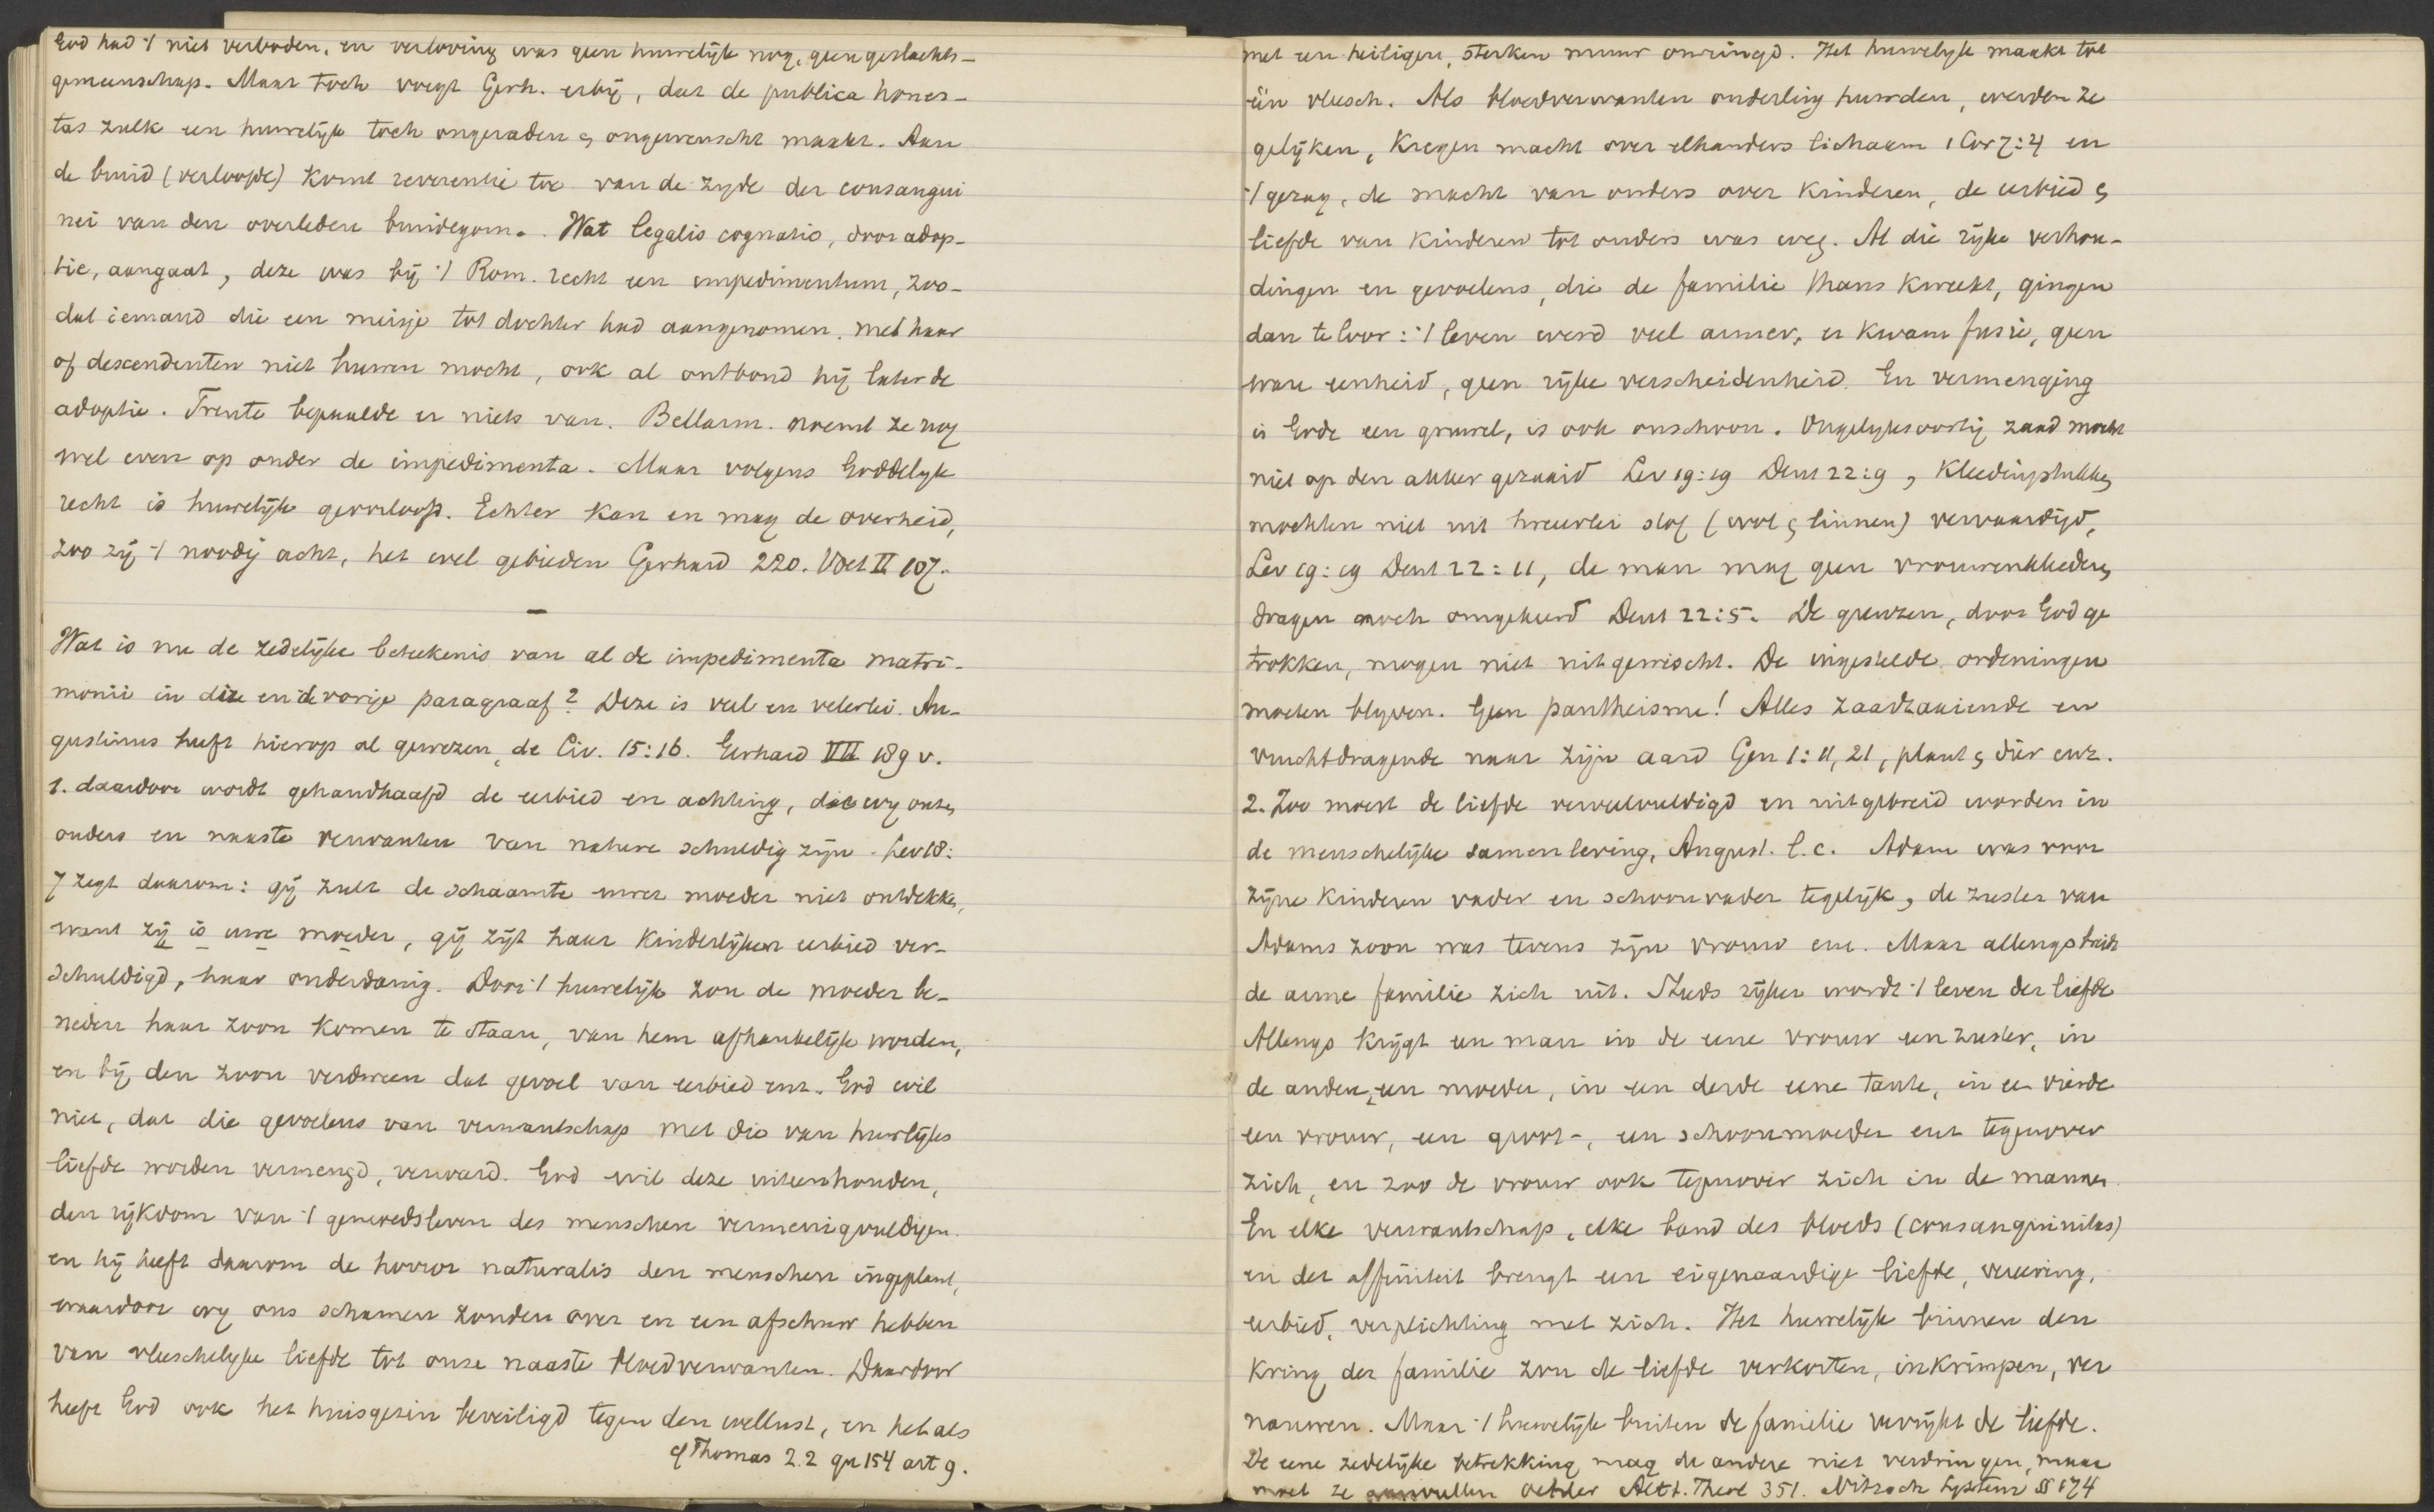 God had 't niet verboden, en verloving was geen huwelijk nog, geen geslachts-
gemeenschap. Maar toch voegt Gerh. erbij, dat de publica hones-
tas zulk een huwelijk toch ongeraden & ongewenscht maakt. Aan
de bruid (verloofde) komt reverentie toe van de zijde der consangui
nei van den overleden bruidegom. Wat legalis cognatio, door adop-
tie, aangaat, deze was bij 't Rom. recht een impedimentum, zoo-
dat iemand die een meisje tot dochter had aangenomen, met haar
of descendenten niet huwen mocht, ook al ontbond hij later de
adoptie. Trente bepaalde er niets van. Bellarm. noemt ze nog
wel even op onder de impedimenta. Maar volgens Goddelijk
recht is huwelijk geoorloofd. Echter kan en mag de overheid,
zoo zij 't noodig acht, het wel gebieden Gerhard 220. Voet II 107.
—
Wat is nu de zedelijke beteekenis van al de impedimenta matri-
monii in deze en de vorige paragraaf? Deze is veel en velerlei. Au-
gustinus heeft hierop al gewezen, de Civ. 15:16. Gerhard VII 189 v.
1. daardoor wordt gehandhaafd de eerbied en achting, die wij onze
ouders en naaste verwanten van nature schuldig zijn. Lev 18:
7 zegt daarom: gij zult de schaamte uwer moeder niet ontdekken,
want zij is uwe moeder, gij zijt haar kinderlijken eerbied ver-
schuldigd, haar onderdanig. Door 't huwelijk zou de moeder be-
neden haar zoon komen te staan, van hem afhankelijk worden,
en bij den zoon verdween dat gevoel van eerbied enz. God wil
niet, dat die gevoelens van verwantschap met die van huwlijks
liefde worden vermengd, verward. God wil deze uiteenhouden,
den rijkdom van 't gemoedsleven des menschen vermenigvuldigen.
en hij heeft daarom de horror naturalis den menschen ingeplant,
waardoor wij ons schamen zouden over en een afschuw hebben
van vleeschelijke liefde tot onze naaste bloedverwanten. Daardoor
heeft God ook het huisgezin beveiligd tegen den wellust, en het als
cf Thomas 2.2 qu 154 art 9.
met een heiligen, sterken muur omringd. Het huwelijk maakt tot
één vleesch. Als bloedverwanten onderling huwden, werden ze
gelijken, kregen macht over elkanders lichaam 1 Cor 7:4 en
't gezag, de macht van ouders over kinderen, de eerbied &
liefde van kinderen tot ouders was weg. Al die rijke verhou-
dingen en gevoelens, die de familie thans kweekt, gingen
dan teloor: 't leven werd veel armer, er kwam fusie, geen
ware eenheid, geen rijke verscheidenheid. En vermenging
is Gode een gruwel, is ook onschoon. Ongelijksoortig zaad mocht
niet op den akker gezaaid Lev 19:19 Deut 22:9, Kleedingstukken
mochten niet uit tweeërlei stof (wol & linnen) vervaardigd,
Lev 19:19 Deut 22:11, de man mag geen vrouwenkleederen
dragen noch omgekeerd Deut 22:5. De grenzen, door God ge
trokken, mogen niet uitgewischt. De ingestelde ordeningen
moeten blijven. Geen pantheisme! Alles zaadzaaiende en
vruchtdragende naar zijn aard Gen 1:11, 21, plant & dier enz.
2. Zoo moest de liefde verveelvuldigd en uitgebreid worden in
de menschelijke samenleving, August. l.c. Adam was voor
zijne kinderen vader en schoonvader tegelijk, de zuster van
Adams zoon was tevens zijn vrouw enz. Maar allengs breidt
de arme familie zich uit. Steeds rijker wordt 't leven der liefde
Allengs krijgt een man in de eene vrouw een zuster, in
de andere, een moeder, in een derde eene tante, in een vierde
een vrouw, een groot-, een schoonmoeder enz tegenover
zich, en zoo de vrouw ook tegenover zich in de mannen.
En elke verwantschap, elke band des bloeds (consanguinitas)
en der affiniteit brengt een eigenaardige liefde, vereering,
eerbied, verplichting met zich. Het huwelijk binnen den
kring der familie zou de liefde verkorten, inkrimpen, ver
nauwen. Maar 't huwelijk buiten de familie verrijkt de liefde.
De eene zedelijke betrekking mag de andere niet verdringen, maar
moet ze aanvullen Oehler Altt. Theol 351. Nitzsch System § 174